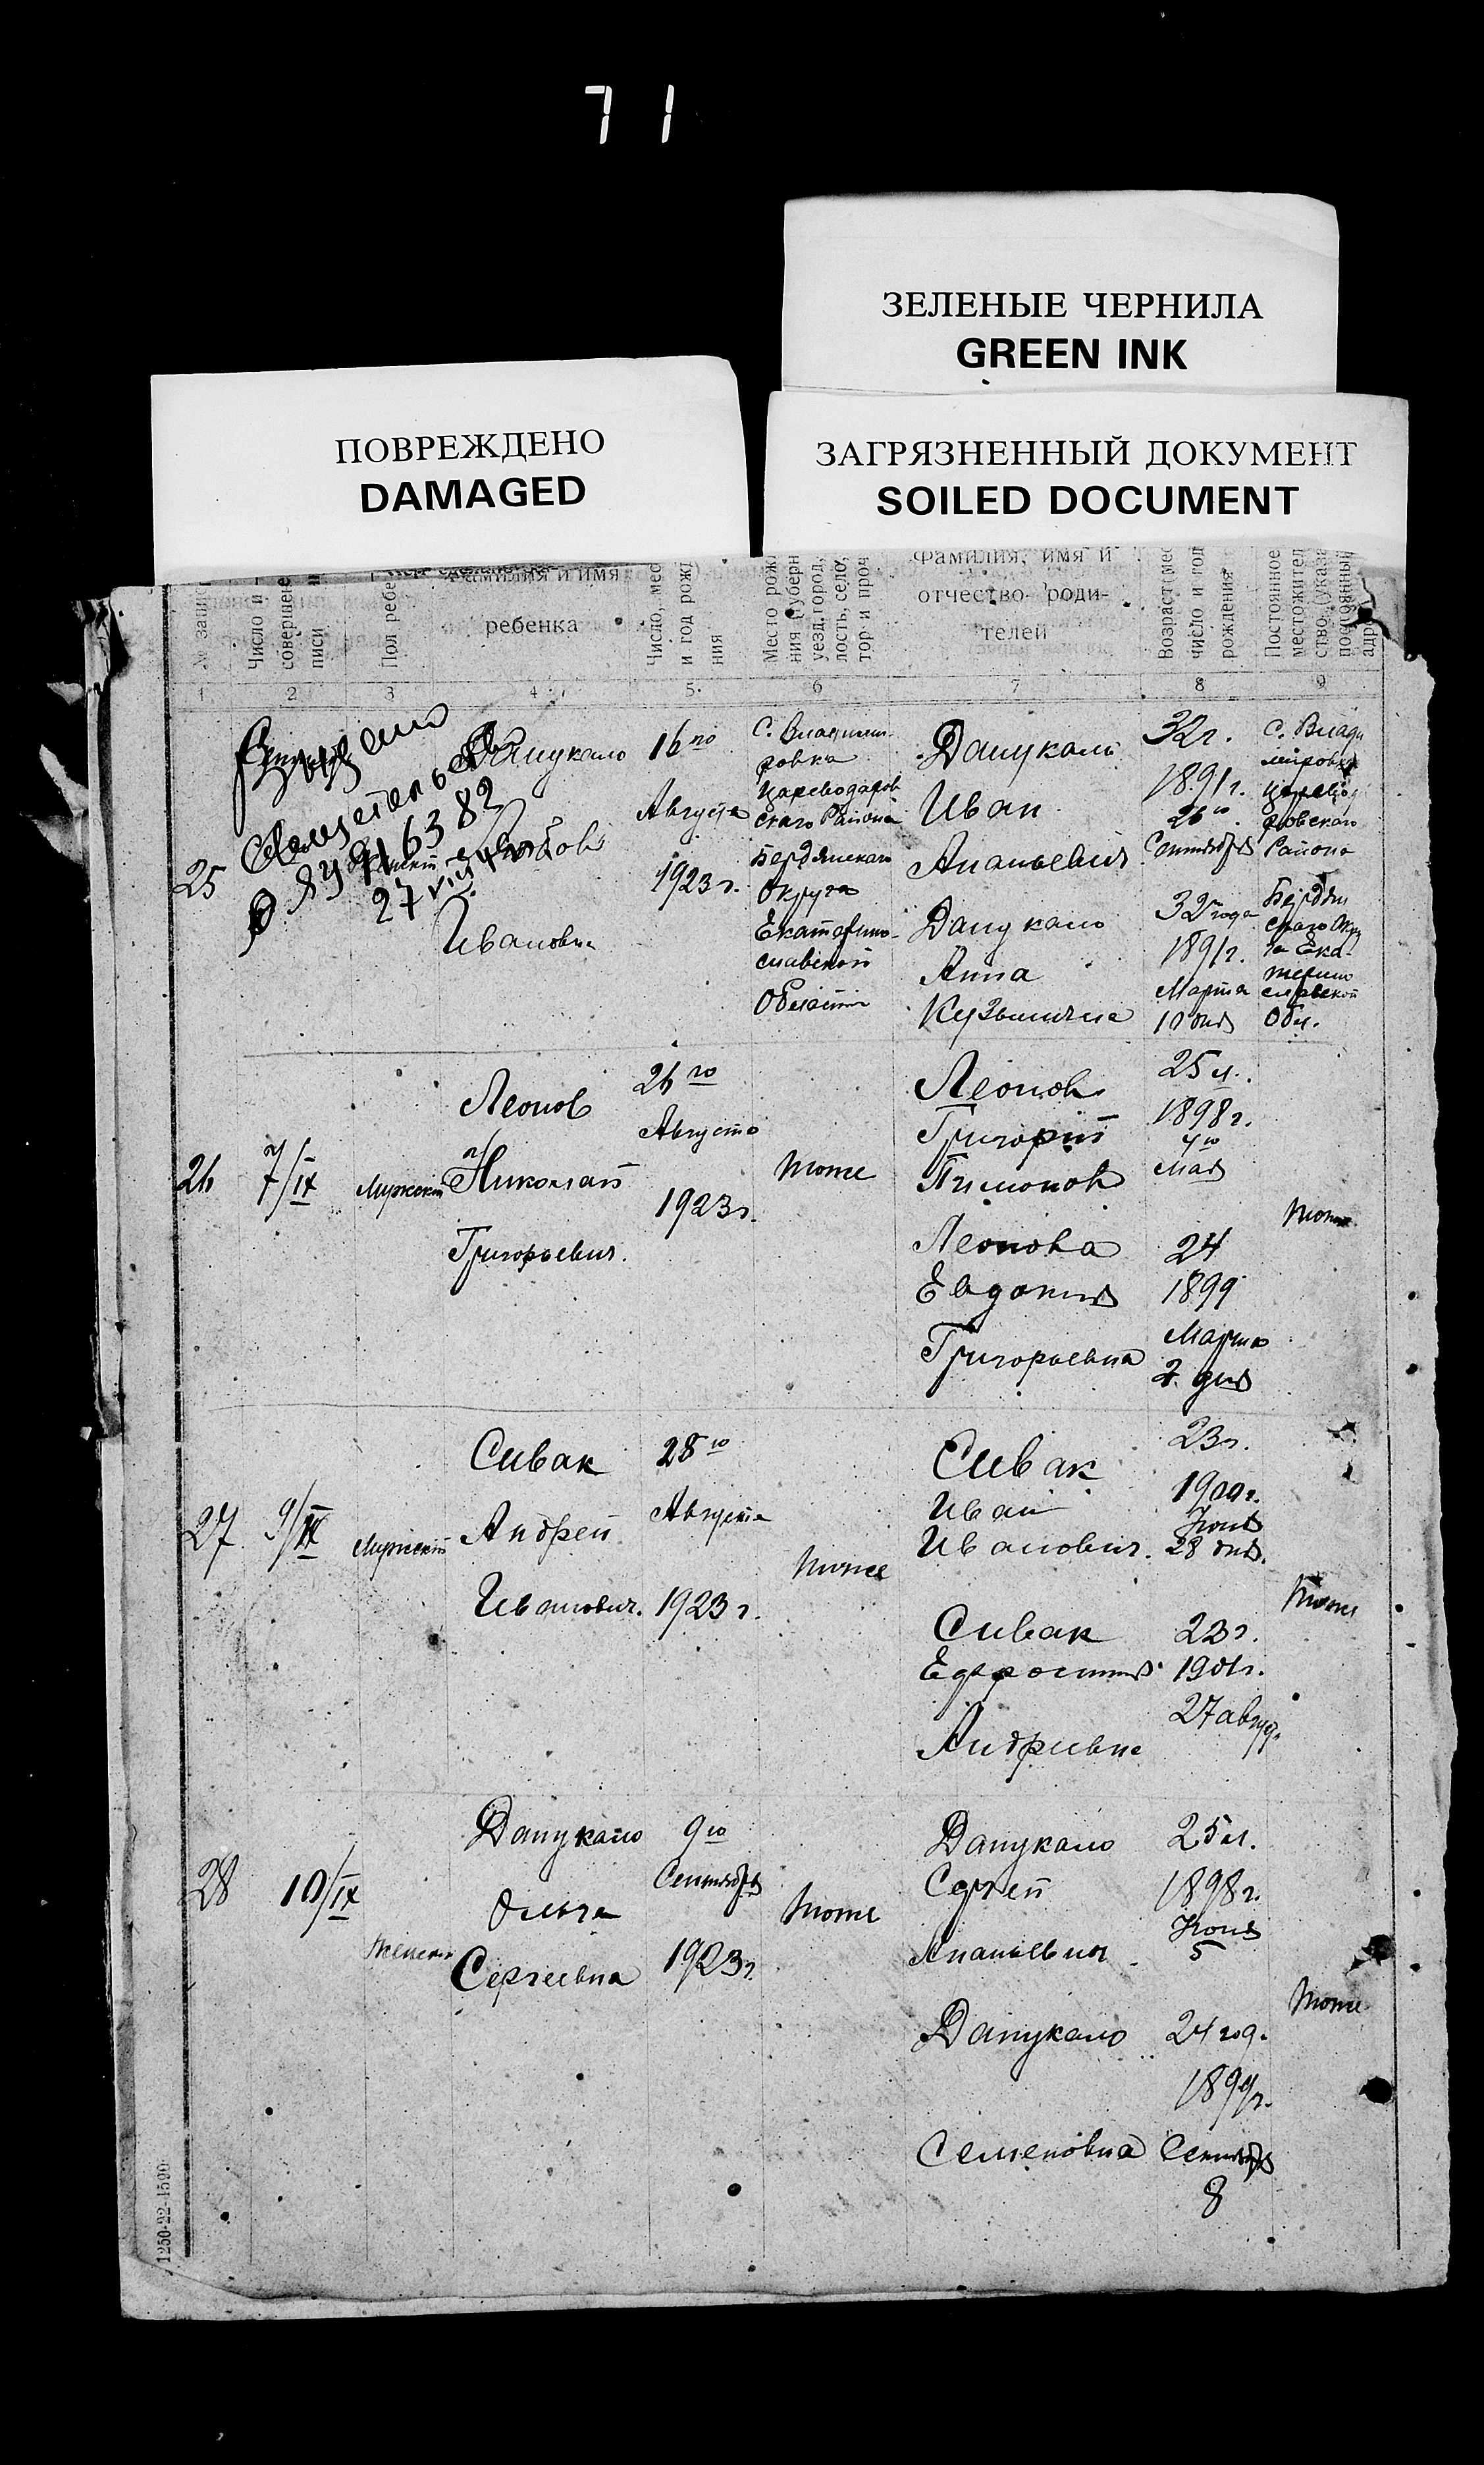 71
ЗЕЛЕНЫЕ ЧЕРНИЛА
GREEN INK
ПОВРЕЖДЕНО
DAMAGED
ЗАГРЯЗНЕННЫЙ ДОКУМЕНТ
SOILED DOCUMENT
Число и
совершене
писи
Пол ребе
Фамилия и имя
ребенка
Число, мес
и год рожд
ния
Место рож
ния (губерн
уезд, город,
лость, село,
тор и проч
Фамилия, имя и
отчество роди-
телей
Возраст (мес
число и год
рождения
Постоянное
местожител
ство (указа
постоянный
адр
1 2 3 4 5 6 7 8 9
25
Выдано
27
Ивановна
16го
Августа
1923 г.
С. Владими-
ровка
Цареводаров
скаго Района
Бердянскаго
Округа
Екатерино-
славской
Области
Дацукало
Иван
Ананьевич
Дацукало
Анна
Кузьминична
32 г.
1891 г.
26го
Сентября
32 года
1891 г.
Марта
10 дня
С. Влади
мировка
Района
Бердян
Ека-
терино
славской
Обл.
26
7/IX
Мужской
Леонов
Николай
Григорьевич.
26го
Августа
1923 г.
тоже
Леонов
Григорий
Тимонов
Леонова
Евдокия
Григорьевна
25 л.
1898 г.
4го
Мая
24
1899
Марта
2 дня
тоже
27
9/IX
Мужской
Сивак
Андрей
Иванович.
28го
Августа
1923 г.
тоже
Сивак
Иван
Иванович.
Сивак
Ефросиния
Андриевна
23 г.
1900 г.
Июня
28 дня.
23 г.
1901 г.
27 август
тоже
28
10/IX
Женский
Дацукало
Ольга
Сергеевна
9го
Сентября
1923 г.
тоже
Дацукало
Сергей
Ананьевич
Дацукало
Семеновна
25 л.
1898 г.
Июня
5
24 год.
1899 г.
Сентября
8
тоже
1250-22-1590